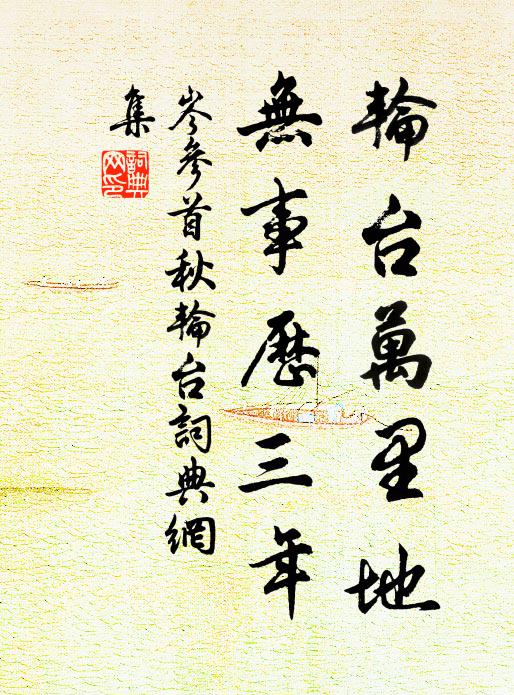 輪台萬里地
無事歷三年
岑參首秋輪台詞典網
集
詞典网印